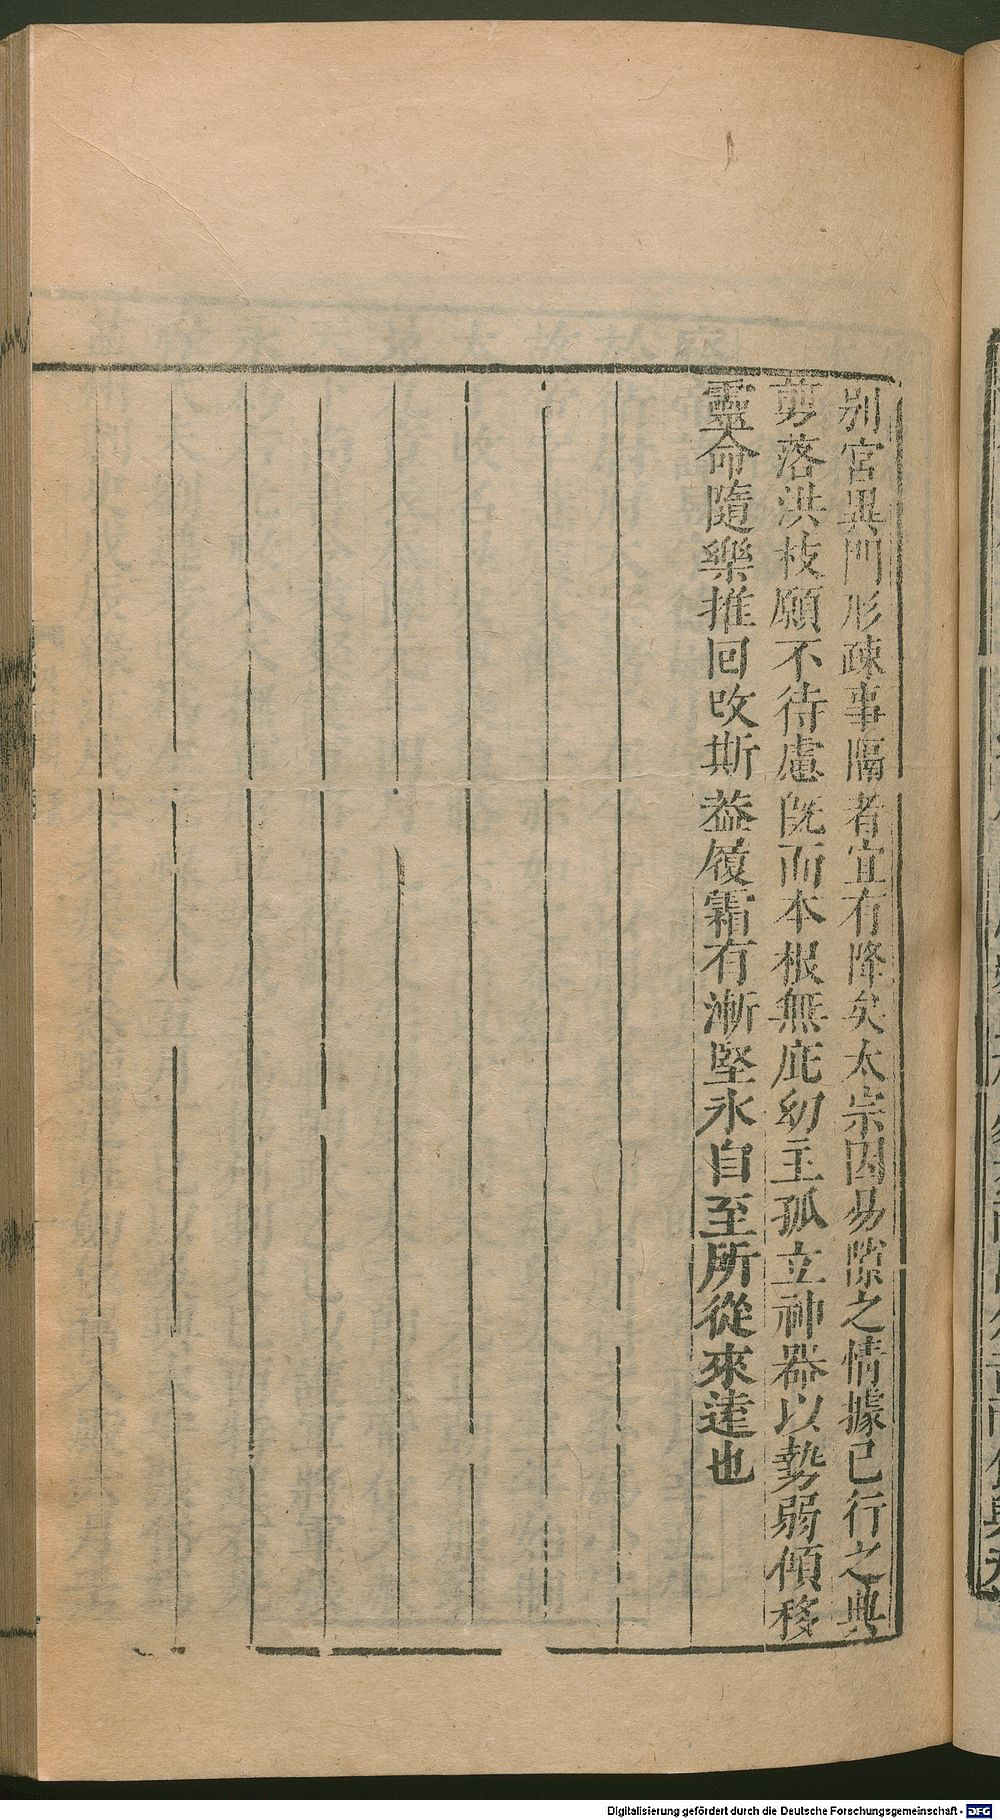 别宮異門形疎事隔者宜有降矣太宗因易隙之情據已行之典
剪落洪枝願不待慮旣而本根無庇幼主孤立神器以勢弱傾移
靈命隨樂推回改斯葢履霜有漸堅氷自至所從來遠也
Digitalisierung gefördert durch die Deutsche Forschungsgemeinschaft - DFG